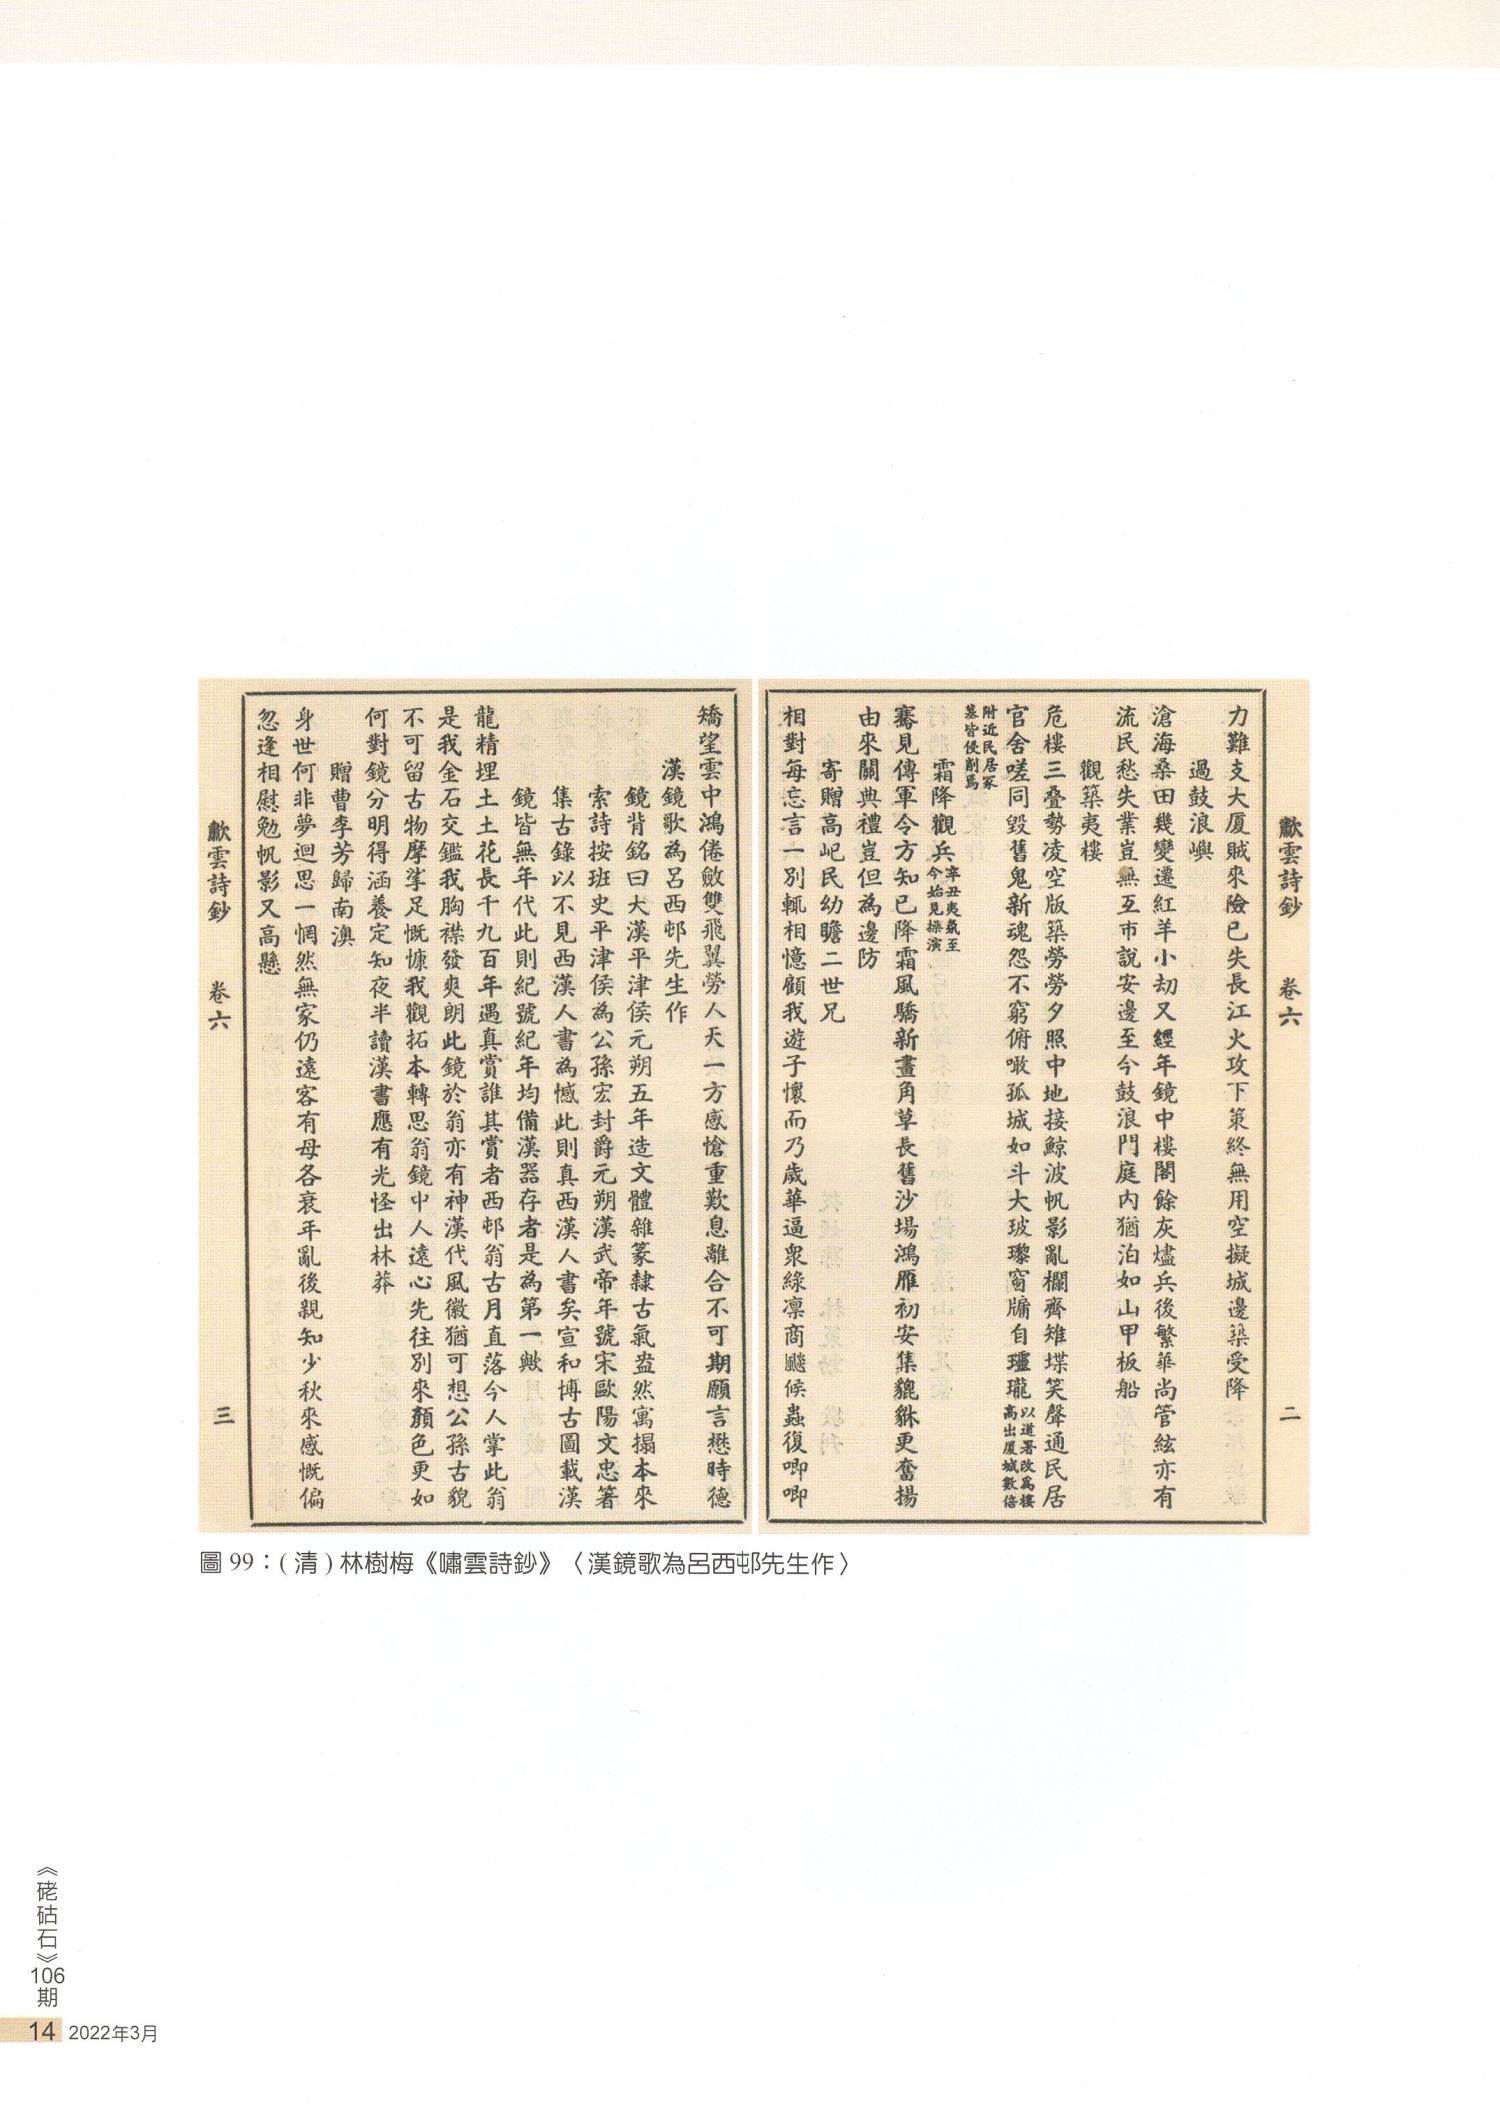 歗雲詩鈔　卷六　二
力難支大厦賊來險已失長江火攻下策終無用空擬城邊築受降
過鼓浪嶼
滄海桑田幾變遷紅羊小劫又經年鏡中樓閣餘灰燼兵後繁華尚管絃亦有
流民愁失業豈無互市說安邊至今鼓浪門庭內猶泊如山甲板船
觀築夷樓
危樓三叠勢凌空版築勞勞夕照中地接鯨波帆影亂欄齊雉堞笑聲通民居
官舍嗟同毀舊鬼新魂怨不窮俯噉孤城如斗大玻瓈窗牖自璭瓏以道署改為樓高出厦城數倍
附近民居冢墓皆侵削焉
霜降觀兵辛丑夷氛至今始見操演
驀見傳軍令方知已降霜風驕新畫角草長舊沙場鴻雁初安集貔貅更奮揚
由來關典禮豈但為邊防
寄贈高屺民幼瞻二世兄
相對每忘言一別輒相憶顧我遊子懷而乃歲華逼衆綠凛商飈候蟲復唧唧
矯望雲中鴻倦斂雙飛翼勞人天一方感愴重歎息離合不可期願言懋時德
漢鏡歌為呂西邨先生作
鏡背銘曰大漢平津侯元朔五年造文體雜篆隸古氣盎然寓搨本來
索詩按班史平津侯為公孫宏封爵元朔漢武帝年號宋歐陽文忠箸
集古錄以不見西漢人書為憾此則真西漢人書矣宣和博古圖載漢
鏡皆無年代此則紀號紀年均備漢器存者是為第一歟
龍精埋土土花長千九百年遇真賞誰其賞者西邨翁古月直落今人掌此翁
是我金石交鑑我胸襟發爽朗此鏡於翁亦有神漢代風徽猶可想公孫古貌
不可留古物摩挲足慨慷我觀拓本轉思翁鏡中人遠心先往別來顏色更如
何對鏡分明得涵養定知夜半讀漢書應有光怪出林莽
贈曹李芳歸南澳
身世何非夢迴思一惘然無家仍遠客有母各衰年亂後親知少秋來感慨偏
忽逢相慰勉帆影又高懸
歗雲詩鈔　卷六　三
圖 99：( 清 ) 林樹梅《嘯雲詩鈔》〈漢鏡歌為呂西邨先生作〉
《硓𥑮石》106期
14 2022年3月